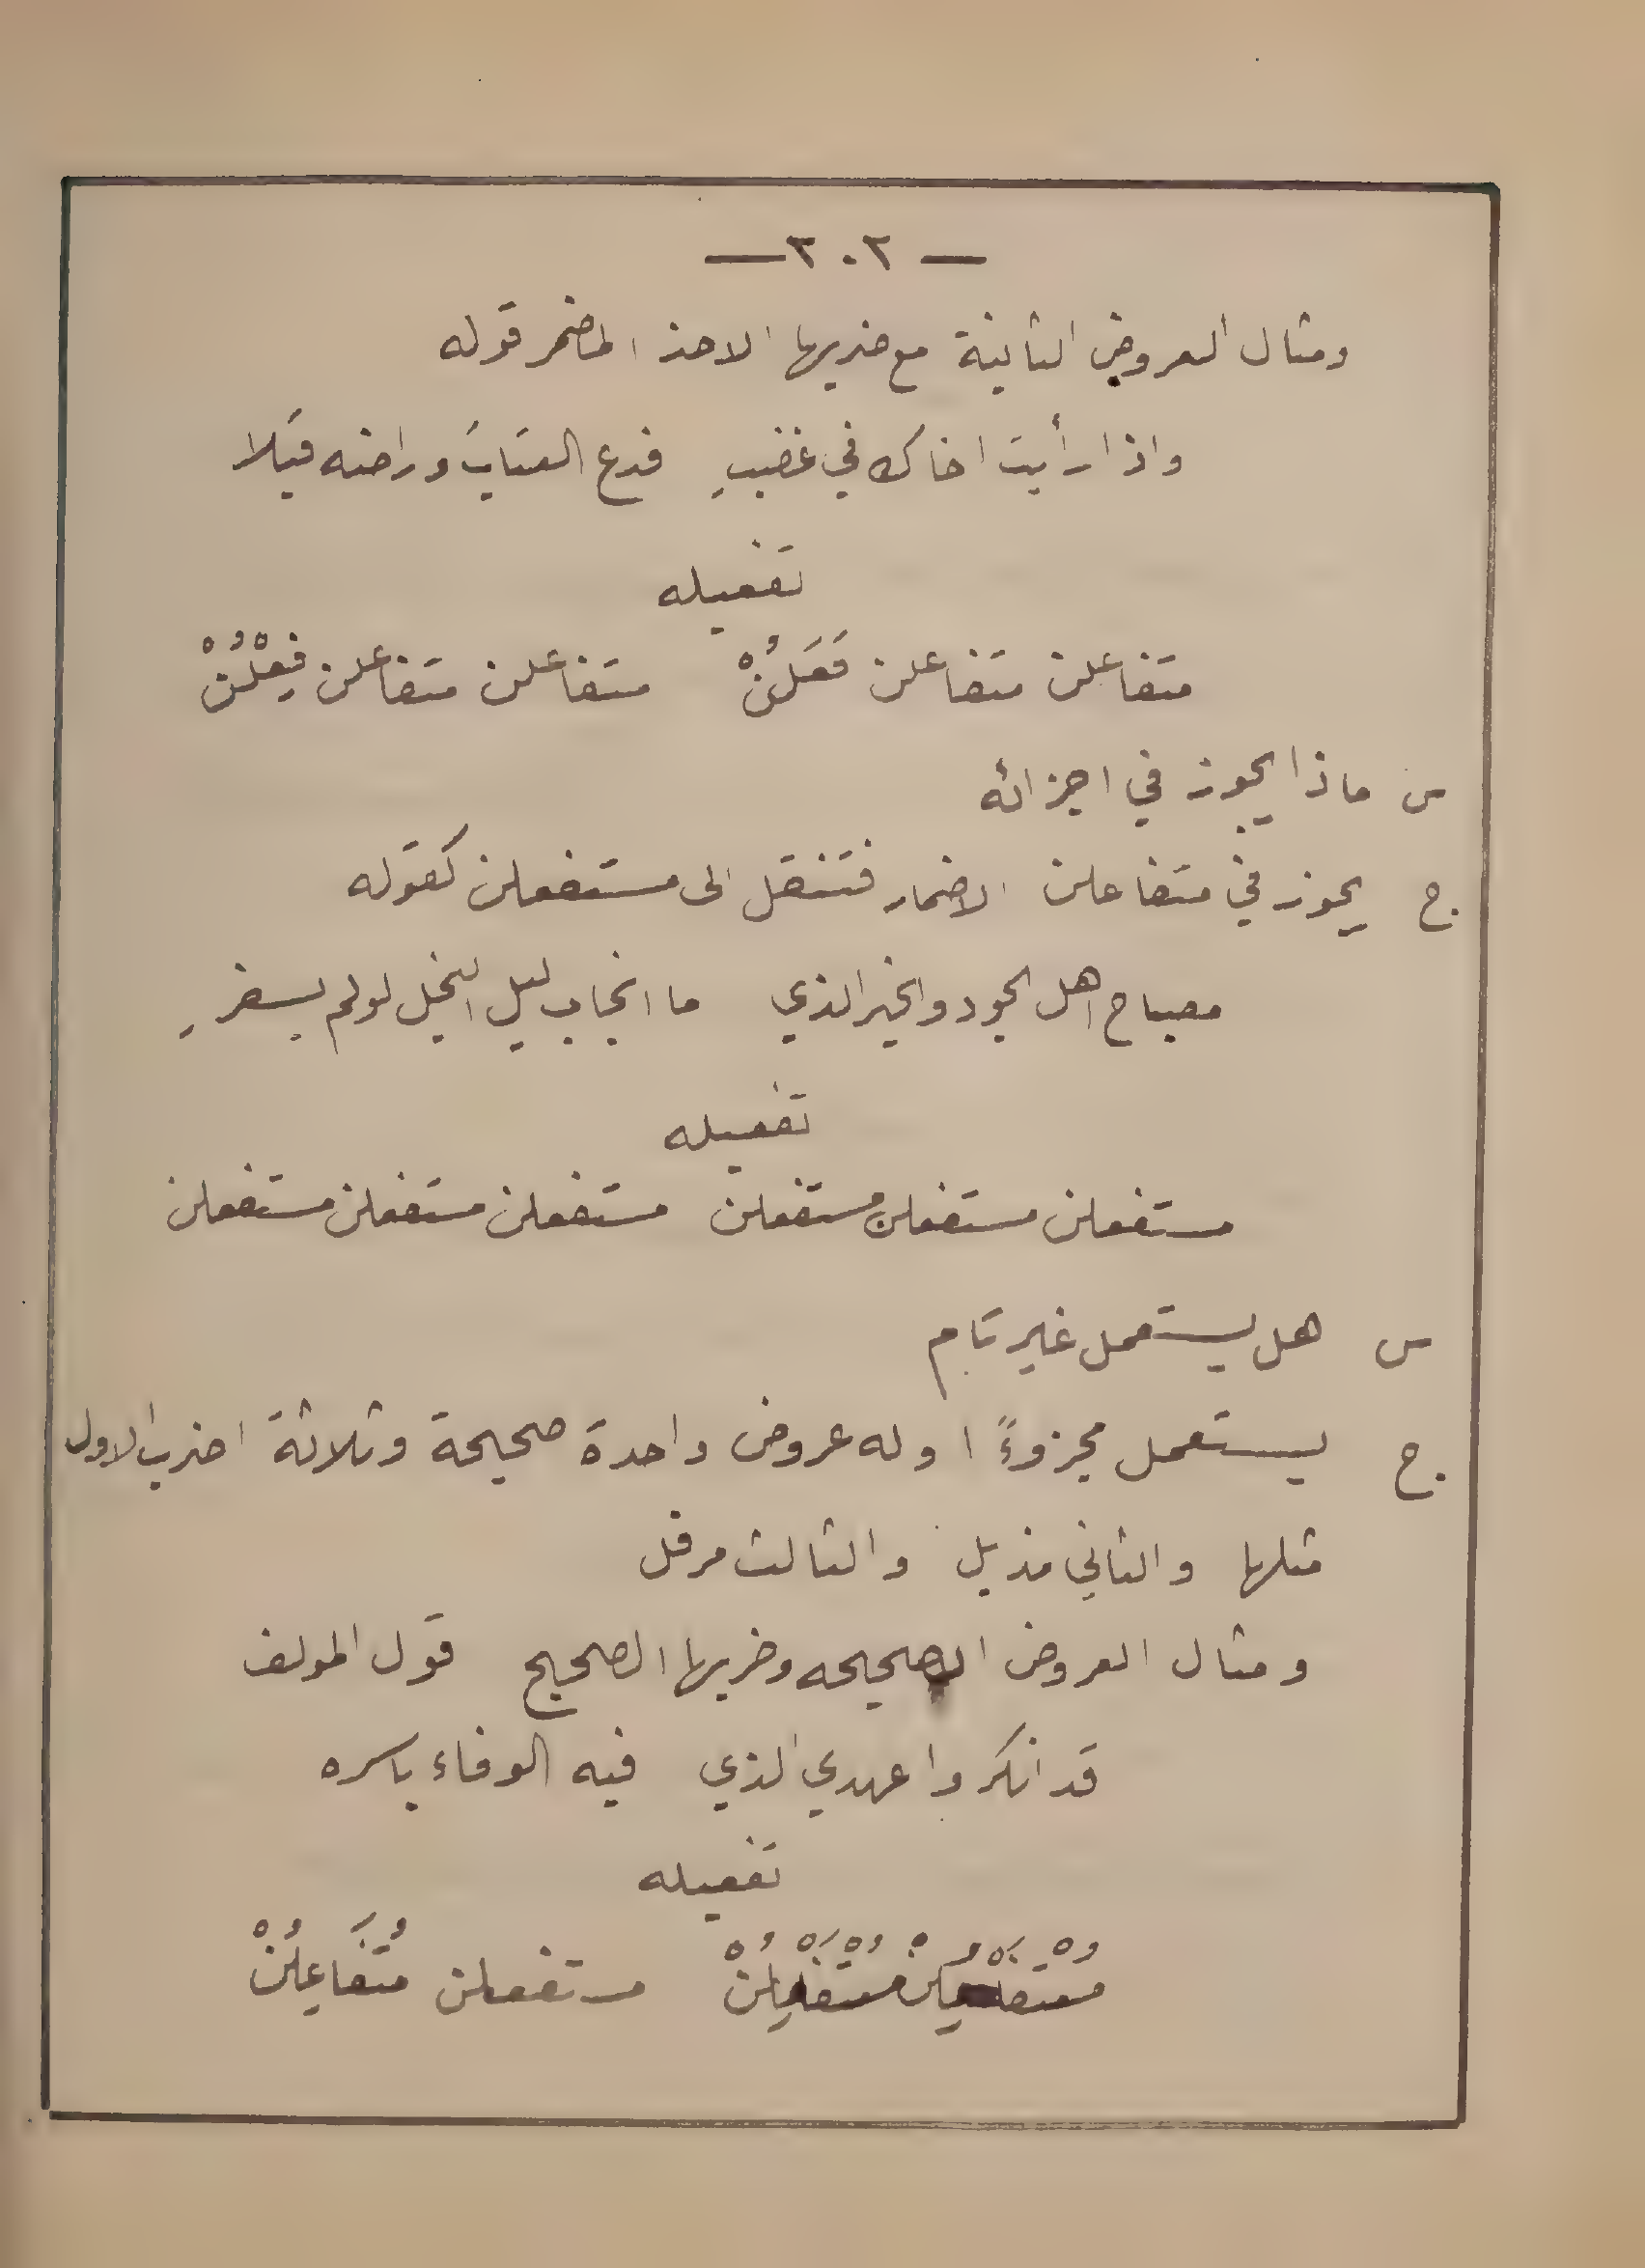 — ٣٠٢ —
ومثال العروض الثانية مع ضربها الاحذ المضمر قوله
واذا رأيت اخاك في غضبٍ فدع العتابَ وراضه قبَلا
تفعيله
متفاعلن متفاعلن فَعَلُنْ متفاعلن متفاعلن فِعْلُنْ
س ماذا يجوز في اجزائه
ج. يجوز في متفاعلن الاضمار فتنقل الى مستفعلن كقوله
مصباح اهل الجود والخير الذي ما انجاب ليل البخل لو لم يسفرِ
تفعيله
مستفعلن مستفعلن مستفعلن مستفعلن مستفعلن مستفعلن
س هل يستعمل غير تام
ج. يستعمل مجزوءًا وله عروض واحدة صحيحة وثلاثة اضرب الاول
مثلها والثاني مذيل والثالث مرفل
ومثال العروض الصحيحه وضربها الصحيح قول المولف
قد انكروا عهدي الذي فيه الوفاء باسره
تفعيله
مُسْتَفْعِلُنْ مُسْتَفْعِلُنْ مستفعلن مُتَفَاعِلُنْ